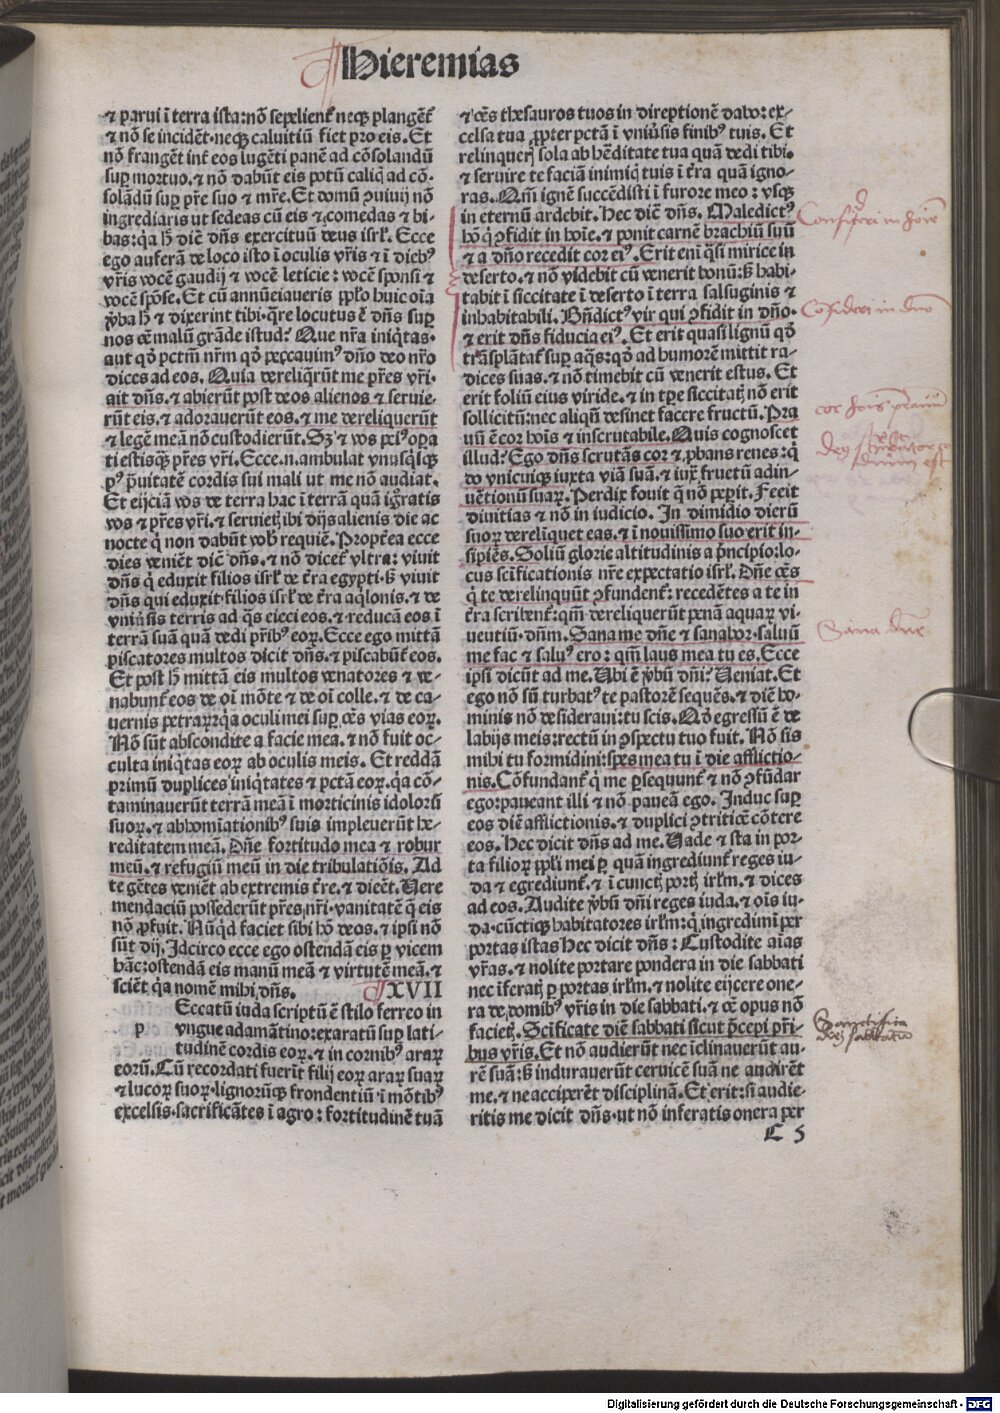 Hieremias
⁊ parui ī terra ista: nō sepelient᷑ necꝫ plangēt᷑
⁊ nō se incidēt. neqꝫ caluitiū fiet pro eis. Et
nō frangēt int᷑ eos lugēti panē ad cōsolandū
suꝑ mortuo. ⁊ nō dabūt eis potū caliꝗ ad cō-
solādū suꝑ pr̄e suo ⁊ mr̄e. Et domū ꝯuiuij nō
ingrediaris ut sedeas cū eis ⁊ comedas ⁊ bi-
bas: q̇a h̄ dic̄ dn̄s exercituū deus isrl̄. Ecce
ego auferā de loco isto ī oculis vr̄is ⁊ ī dieb⁹
vr̄is vocē gaudij ⁊ vocē leticie: vocē sponsi ⁊
vocē spōse. Et cū annūciaueris pp̄lo huic oīa
ꝟba h̄ ⁊ dixerint tibi. q̄re locutus ē dn̄s suꝑ
nos om̄e malū grāde istud? Que nr̄a iniq̇tas.
aut qd̄ pctm̄ nr̄m qd̄ peccauim⁹ dn̄o deo nr̄o
dices ad eos. Quia dereliq̇rūt me pr̄es vr̄i.
ait dn̄s. ⁊ abierūt post deos alienos ⁊ seruie-
rūt eis. ⁊ adorauerūt eos. ⁊ me dereliquerūt
⁊ legē meā nō custodierūt. Sꝫ ⁊ vos pei⁹ oꝑa
ti estis qꝫ pr̄es vr̄i. Ecce.n. ambulat vnusq̇sqꝫ
p⁹ p̄uitatē cordis sui mali ut me nō audiat.
Et eijciā vos de terra hac ī terrā quā ig̅ratis
vos ⁊ pr̄es vr̄i. ⁊ seruietꝭ ibi dijs alienis die ac
nocte q̇ non dabūt vob̄ requiē. Propt᷑ea ecce
dies veniēt dic̄ dn̄s. ⁊ nō dicet᷑ vltra: viuit
dn̄s q̇ eduxit filios isrl̄ de t᷑ra egypti. sꝫ viuit
dn̄s qui eduxit filios isrl̄ de t᷑ra aq̇lonis. ⁊ de
vniu᷑sis terris ad q̄s eieci eos. ⁊ reducā eos ī
terrā suā quā dedi pr̄ib⁹ eoꝝ. Ecce ego mittā
piscatores multos dicit dn̄s. ⁊ piscabūt᷑ eos.
Et post h̄ mittā eis multos venatores ⁊ ve-
nabunt᷑ eos de oī mōte ⁊ de oī colle. ⁊ de ca-
uernis petraꝝ: q̇a oculi mei suꝑ om̄s vias eoꝝ.
Nō sūt abscondite a facie mea. ⁊ nō fuit oc-
culta iniq̇tas eoꝝ ab oculis meis. Et reddā
primū duplices iniq̇tates ⁊ pctā eoꝝ. q̇a cō-
taminauerūt terrā meā ī morticinis idoloꝝ
suoꝝ. ⁊ abhomīationib⁹ suis impleuerūt he-
reditatem meā. Dn̄e fortitudo mea ⁊ robur
meū. ⁊ refugiū meū in die tribulatiōis. Ad
te gētes veniēt ab extremis t᷑re. ⁊ dicēt. Vere
mendaciū possederūt pr̄es nr̄i. vanitatē q̄ eis
nō ꝓfuit. Nūqd̄ faciet sibi hō deos. ⁊ ipsi nō
sūt dij. Idcirco ecce ego ostendā eis ꝑ vicem
hāc: ostendā eis manū meā ⁊ virtutē meā. ⁊
sciēt q̇a nomē mihi dn̄s. XVII
Eccatū iuda scriptū ē stilo ferreo in
p vngue adamātino: exaratū suꝑ lati-
tudinē cordis eoꝝ. ⁊ in cornib⁹ araꝝ
eorū. Cū recordati fuerīt filij eoꝝ araꝝ suaꝝ
⁊ lucoꝝ suoꝝ. lignorūqꝫ frondentiū ī mōtib⁹
excelsis. sacrificātes ī agro: fortitudinē tuā
⁊ om̄s thesauros tuos in direptionē dabo: ex-
celsa tua ꝓpter pctā ī vniu᷑sis finib⁹ tuis. Et
relinquerꝭ sola ab hēditate tua quā dedi tibi.
⁊ seruire te faciā inimicꝭ tuis ī t᷑ra quā igno-
ras. Qm̄ ignē succēdisti ī furore meo: vsqꝫ
in eternū ardebit. Hec dic̄ dn̄s. Maledict⁹
hō q̇ ꝯfidit in hoīe. ⁊ ponit carnē brachiū suū
⁊ a dn̄o recedit cor ei⁹. Erit eni q̄si mirice in
deserto. ⁊ nō videbit cū venerit bonū: sꝫ habi-
tabit ī siccitate ī deserto ī terra salsuginis ⁊
inhabitabili. Bn̄dict⁹ vir qui ꝯfidit in dn̄o.
⁊ erit dn̄s fiducia ei⁹. Et erit quasi lignū qd̄
trāsplātat᷑ suꝑ aq̄s: qd̄ ad humorē mittit ra-
dices suas. ⁊ nō timebit cū venerit estus. Et
erit foliū eius viride. ⁊ in tꝑe siccitatꝭ nō erit
sollicitū: nec aliqn̄ desinet facere fructū. Pra
uū ē cor hoīs ⁊ inscrutabile. Quis cognoscet
illud? Ego dn̄s scrutās cor ⁊ ꝓbans renes: q̇
do vnicuiqꝫ iuxta viā suā. ⁊ iux̄ fructū adin-
uētionū suaꝝ. Perdix fouit q̄ nō peꝑit. Fecit
diuitias ⁊ nō in iudicio. In dimidio dierū
suoꝝ derelīquet eas. ⁊ ī nouissimo suo erit in-
sipiēs. Soliū glorie altitudinis a p̄ncipio: lo-
cus scīficationis nr̄e expectatio isrl̄. Dn̄e om̄s
q̇ te derelinquūt ꝯfundent᷑: recedētes a te in
t᷑ra scribent᷑: qm̄ dereliquerūt venā aquaꝝ vi-
uentiū. dn̄m. Sana me dn̄e ⁊ sanabor. saluū
me fac ⁊ salu⁹ ero: qm̄ laus mea tu es. Ecce
ipsi dicūt ad me. Ubi ē ꝟbū dn̄i? Veniat. Et
ego nō sū turbat⁹ te pastorē sequēs. ⁊ diē ho-
minis nō desideraui: tu scis. Qd̄ egressū ē de
labijs meis: rectū in ꝯspectu tuo fuit. Nō sis
mihi tu formidini: spes mea tu ī die afflictio-
nis. Cōfundant᷑ q̇ me ꝑsequunt᷑ ⁊ nō ꝯfūdar
ego: paueant illi ⁊ nō paueā ego. Induc suꝑ
eos diē afflictionis. ⁊ duplici ꝯtriticē cōtere
eos. Hec dicit dn̄s ad me. Vade ⁊ sta in por-
ta filioꝝ pp̄li mei ꝑ quā ingrediunt᷑ reges iu-
da ⁊ egrediunt᷑. ⁊ ī cunctꝭ portꝭ irlm̄. ⁊ dices
ad eos. Audite ꝟbū dn̄i reges iuda. ⁊ oīs iu-
da. cūctiqꝫ habitatores irlm̄: q̇ ingredimī per
portas istas Hec dicit dn̄s: Custodite aīas
vr̄as. ⁊ nolite portare pondera in die sabbati
nec īferatꝭ ꝑ portas irlm̄. ⁊ nolite eijcere one-
ra de domib⁹ vr̄is in die sabbati. ⁊ om̄e opus nō
facietꝭ. Scīficate diē sabbati sicut p̄cepi pr̄i-
bus vr̄is. Et nō audierūt nec īclinauerūt au-
rē suā: sꝫ indurauerūt ceruicē suā ne audirēt
me. ⁊ ne acciperēt disciplinā. Et erit: si audie-
ritis me dicit dn̄s. ut nō inferatis onera per
C 5
Confiderj in hoīe
Cōfiderj in dn̄o
cor hoīs prauū
Sana dn̄e
Digitalisierung gefördert durch die Deutsche Forschungsgemeinschaft - DFG